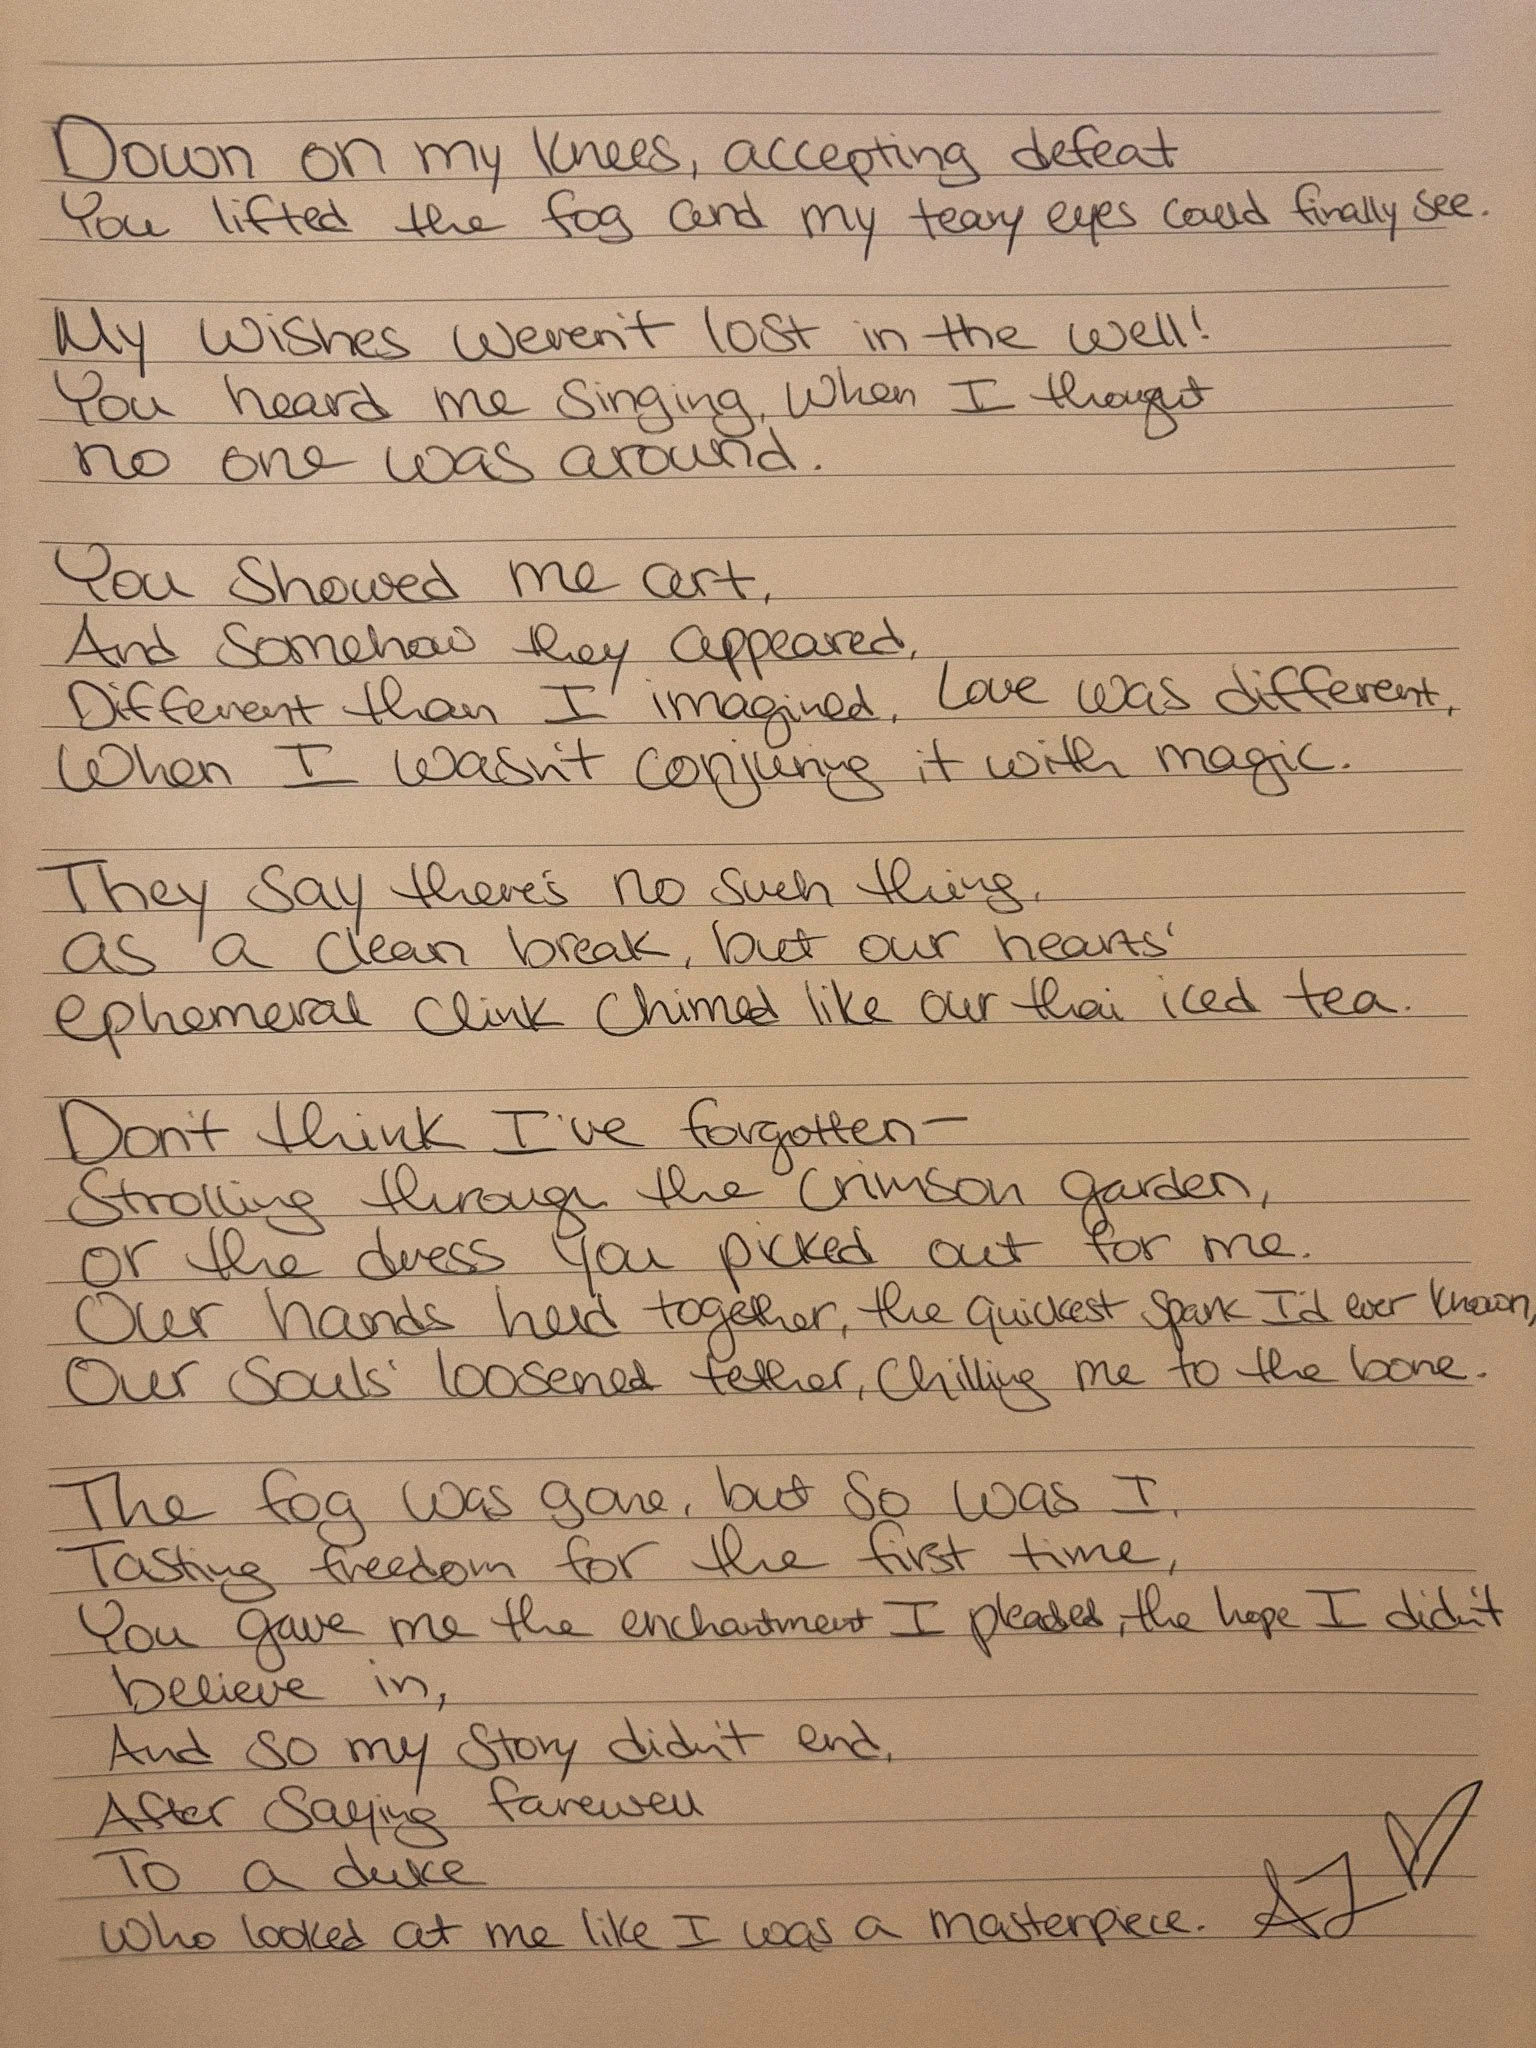 Down on my knees, accepting defeat
You lifted the fog and my teary eyes could finally see.
My wishes weren't lost in the well!
You heard me singing, when I thought
no one was around.
You showed me art,
And somehow they appeared,
Different than I imagined, Love was different,
When I wasn't conjuring it with magic.
They say there's no such thing,
as a clean break, but our hearts'
ephemeral clink chimed like our thai iced tea.
Don't think I've forgotten-
Strolling through the crimson garden,
or the dress you picked out for me.
Our hands held together, the quickest spark I'd ever known,
Our souls' loosened tether, chilling me to the bone.
The fog was gone, but so was I,
Tasting freedom for the first time,
You gave me the enchantment I pleaded, the hope I didn't
believe in,
And so my story didn't end,
After saying farewell
To a duke
who looked at me like I was a masterpiece. AJ